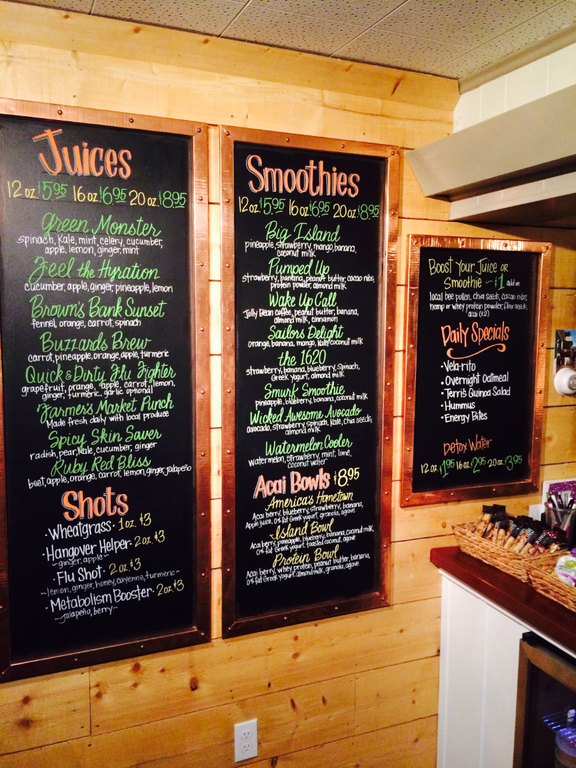 Juices
12 oz. $5.95 16 oz $6.95 20 oz $8.95
Green Monster
spinach, kale, mint, celery, cucumber,
apple, lemon, ginger, mint
Feel the Hyration
cucumber, apple, ginger, pineapple, lemon
Brown's Bank Sunset
fennel, orange, carrot, spinach
Buzzards Brew
carrot, pineapple, orange, apple, turmeric
Quick & Dirty Flu Fighter
grapefruit, orange, apple, carrot, lemon,
ginger, turmeric, garlic optional
Farmer's Market Punch
Made fresh daily with local produce
Spicy Skin Saver
radish, pear, kale, cucumber, ginger
Ruby Red Bliss
beet, apple, orange, carrot, lemon, ginger, jalapeño
Shots
· Wheatgrass · 1 oz. $3
· Hangover Helper · 2 oz $3
~ ginger, apple ~
· Flu Shot · 2 oz $3
~ lemon, ginger, honey, cayenne, turmeric ~
· Metabolism Booster · 2 oz $3
~ jalapeño, berry ~
Smoothies
12 oz. $5.95 16 oz $6.95 20 oz. $8.95
Big Island
pineapple, strawberry, mango, banana,
coconut milk
Pumped Up
strawberry, banana, peanut butter, cacao nibs,
protein powder, almond milk
Wake Up Call
Jolly Bean coffee, peanut butter, banana,
almond milk, cinnamon
Sailors Delight
orange, banana, mango, kelp, coconut milk
the 1620
strawberry, banana, blueberry, spinach,
Greek yogurt, almond milk
Smurf Smoothie
pineapple, blueberry, banana, coconut milk
Wicked Awesome Avocado
avocado, strawberry, spinach, kale, chia seeds,
almond milk
Watermelon Cooler
watermelon, strawberry, mint, lime,
coconut water
Acai Bowls $8.95
America's Hometown
Acai berry, blueberry, strawberry, banana,
Apple juice, 0% fat Greek yogurt, granola, agave
Island Bowl
Acai berry, pineapple, blueberry, banana, coconut milk,
0% fat Greek yogurt, toasted coconut, agave
Protein Bowl
Acai berry, whey protein, peanut butter, banana,
0% fat Greek yogurt, almond milk, granola, agave
Boost Your Juice or
Smoothie ~ $1 add on
local bee pollen, chia seeds, cacao nibs,
hemp or whey protein powder, flax seeds,
acai ($2)
Daily Specials
· Vela-rito
· Overnight Oatmeal
· Terri's Quinoa Salad
· Hummus
· Energy Bites
Detox Water
12 oz $1.95 16 oz $2.95 20 oz $3.95